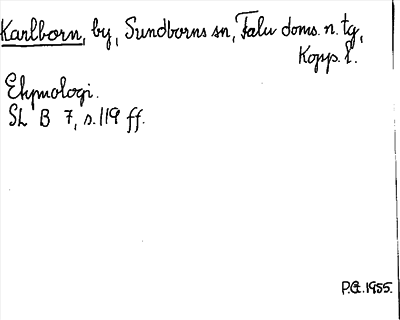 Karlborn, by, Sundborns sn, Falu doms. n. tg,
Kopp. l.
Etymologi.
SL B 7, s. 119 ff.
P.G. 1955.